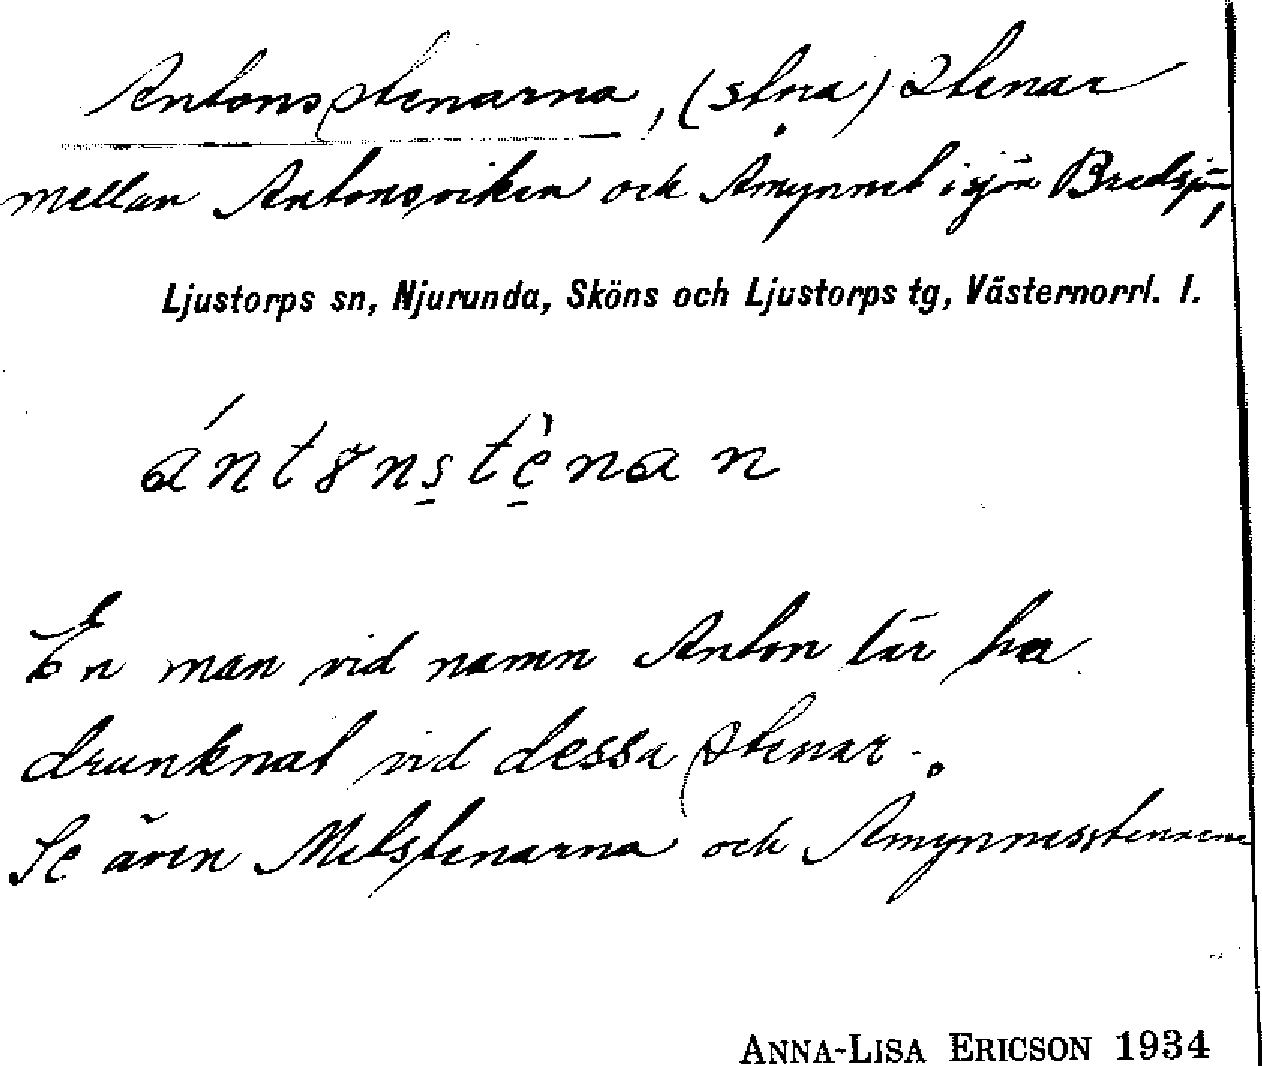 Antonsstenarna, (stora) stenar
mellan Antonsviken och Åmynnet i sjön Bredsjön,
Ljustorps sn, Njurunda, Sköns och Ljustorps tg, Västernorrl. l.
ántɤns̠tè̠nan
En man vid namn Anton lär ha
drunknat vid dessa stenar.
Se även Metstenarna och Åmynnesstenarna
ANNA-LISA ERICSON 1934